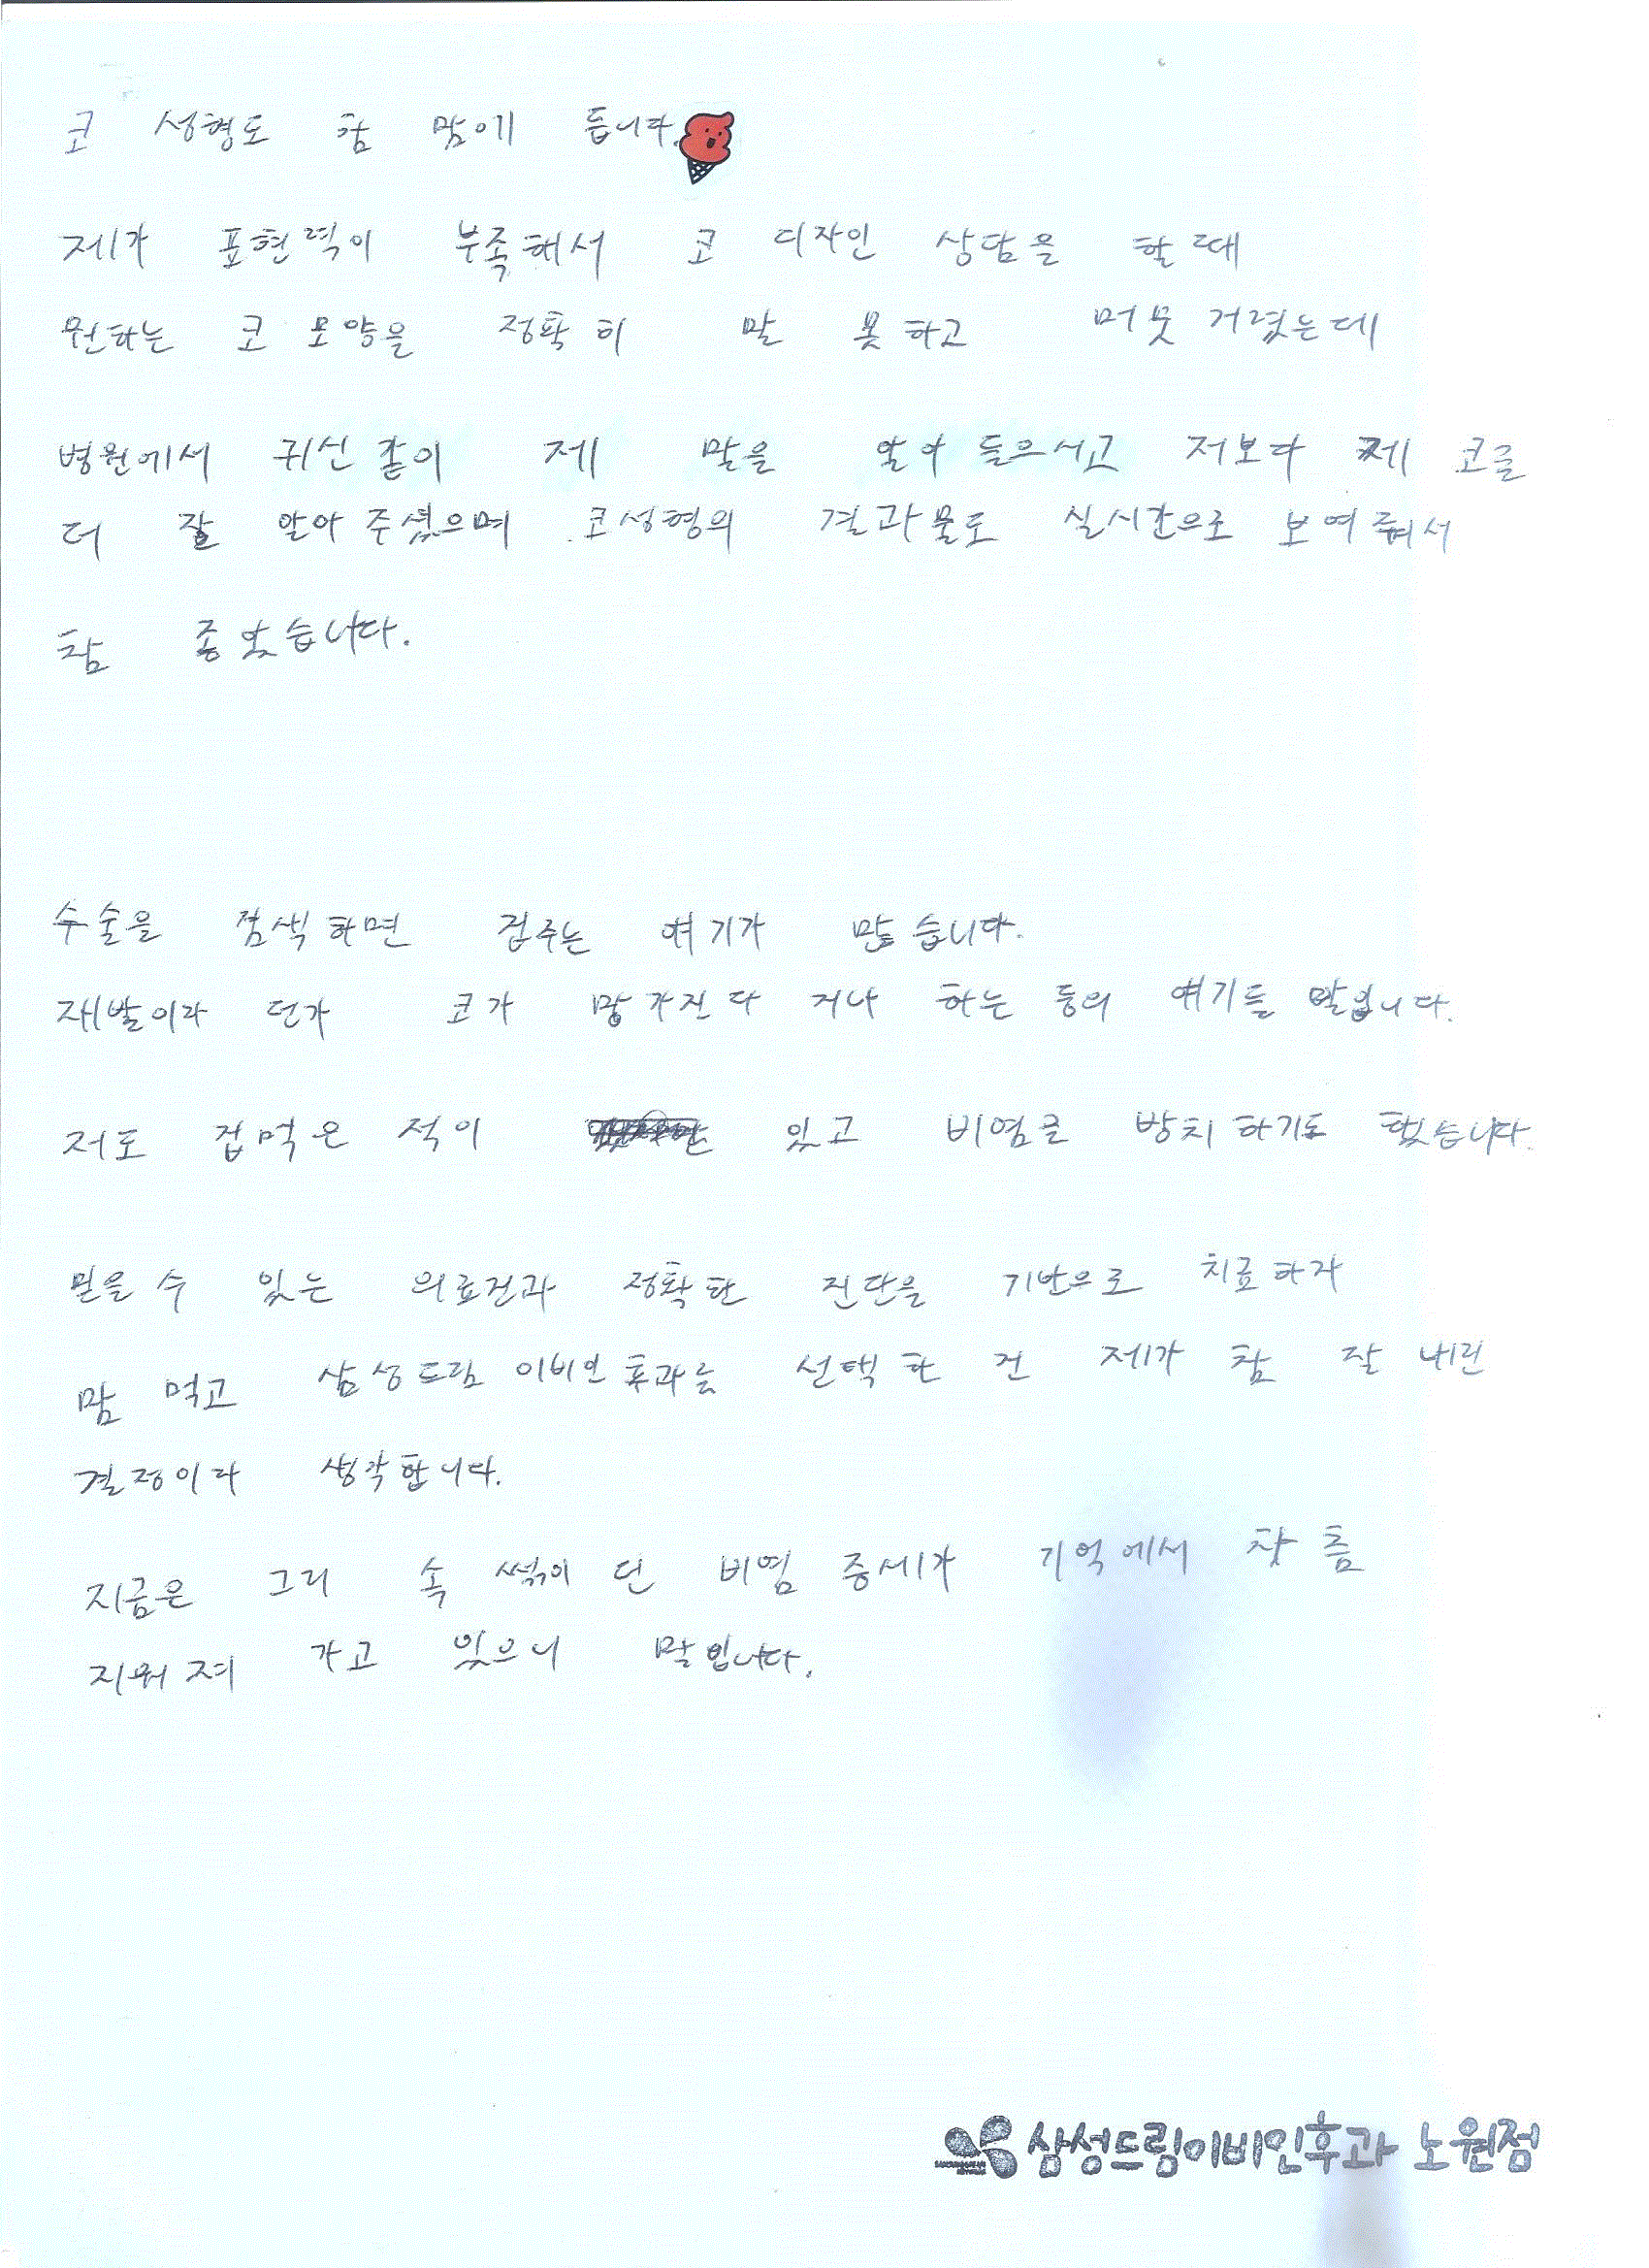 코 성형도 참 맘에 듭니다.
제가 표현력이 부족해서 코 디자인 상담을 할 때
원하는 코 모양을 정확히 말 못하고 머뭇 거렸는데
병원에서 귀신 같이 제 말을 알아 들으시고 저보다 제 코를
더 잘 알아 주셨으며 코성형의 결과물도 실시간으로 보여 줘서
참 좋았습니다.
수술을 검색하면 겁주는 얘기가 많습니다.
재발이라 던가 코가 망가진다 거나 하는 등의 얘기들 말입니다.
저도 겁먹은 적이 있고 비염을 방치하기도 했습니다.
믿을 수 있는 의료진과 정확한 진단을 기반으로 치료하자
맘 먹고 삼성드림 이비인후과를 선택한 건 제가 참 잘 내린
결정이라 생각합니다.
지금은 그리 속 썩이던 비염 증세가 기억에서 차츰
지워져 가고 있으니 말입니다.
삼성드림이비인후과 노원점